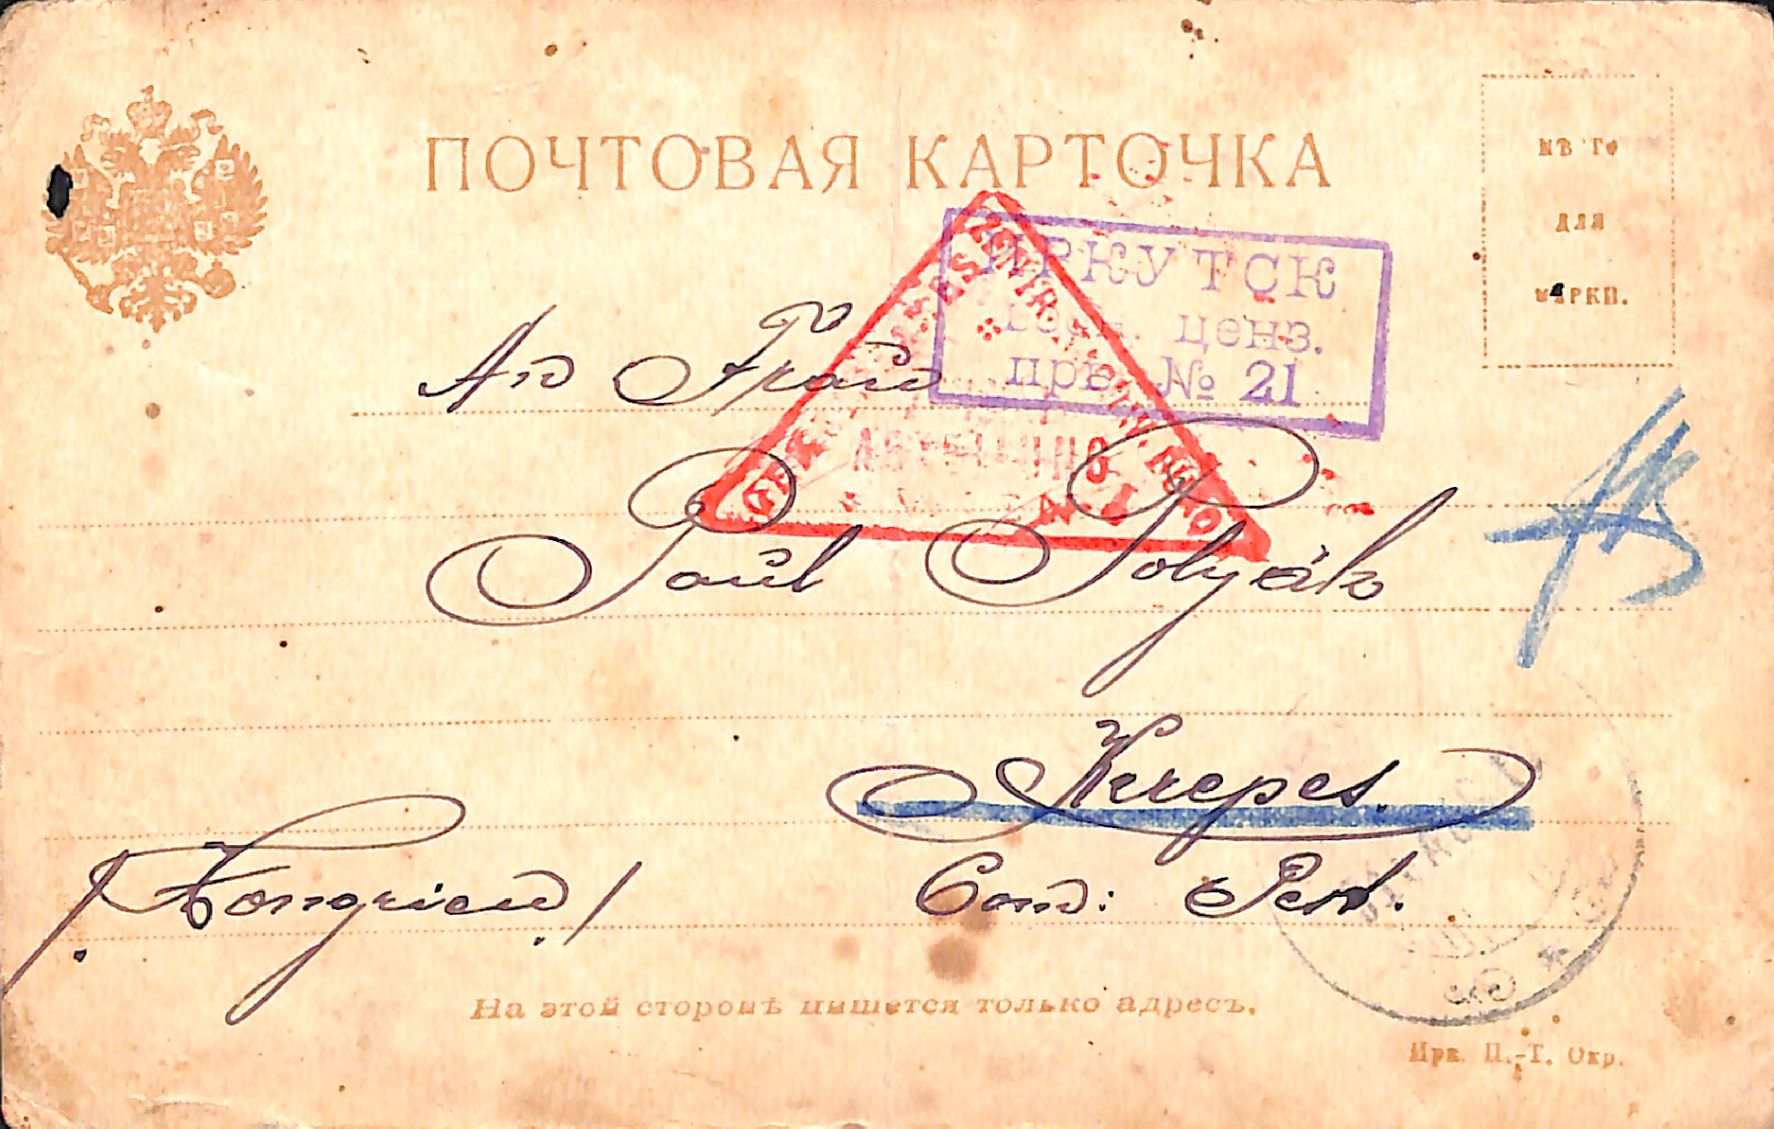 ПОЧТОВАЯ КАРТОЧКА
МѢСТО
ДЛЯ
МАРКИ.
ИРКУТСК
ценз.
№ 21
An Frau
Paul Polyák
Kerepes.
Com: Pest.
/Hongrien!/
На этой сторонѣ пишется только адресъ.
Ирк. П.-Т. Окр.